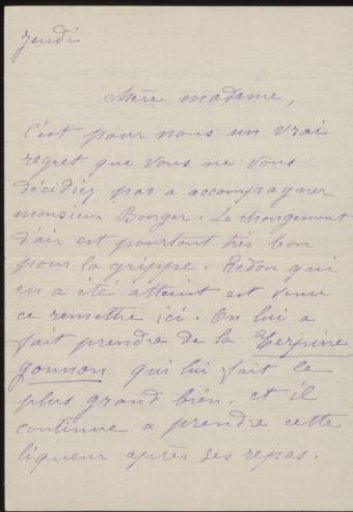 jeudi
Chère madame,
C'est pour nous un vrai
regret que vous ne vous
décidiez pas a accompagner
monsieur Bonger. Le changement
d'air est pourtant très bon
pour la grippe. Redon qui
en a été atteint est venu
se remettre ici. On lui a
fait prendre de la Terpine
gonnon qui lui fait le
plus grand bien, et il
continue a prendre cette
liqueur après ses repas.